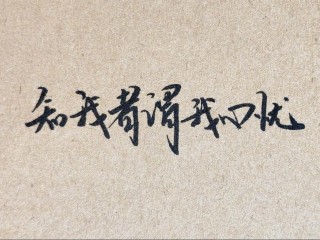 知我者谓我心忧